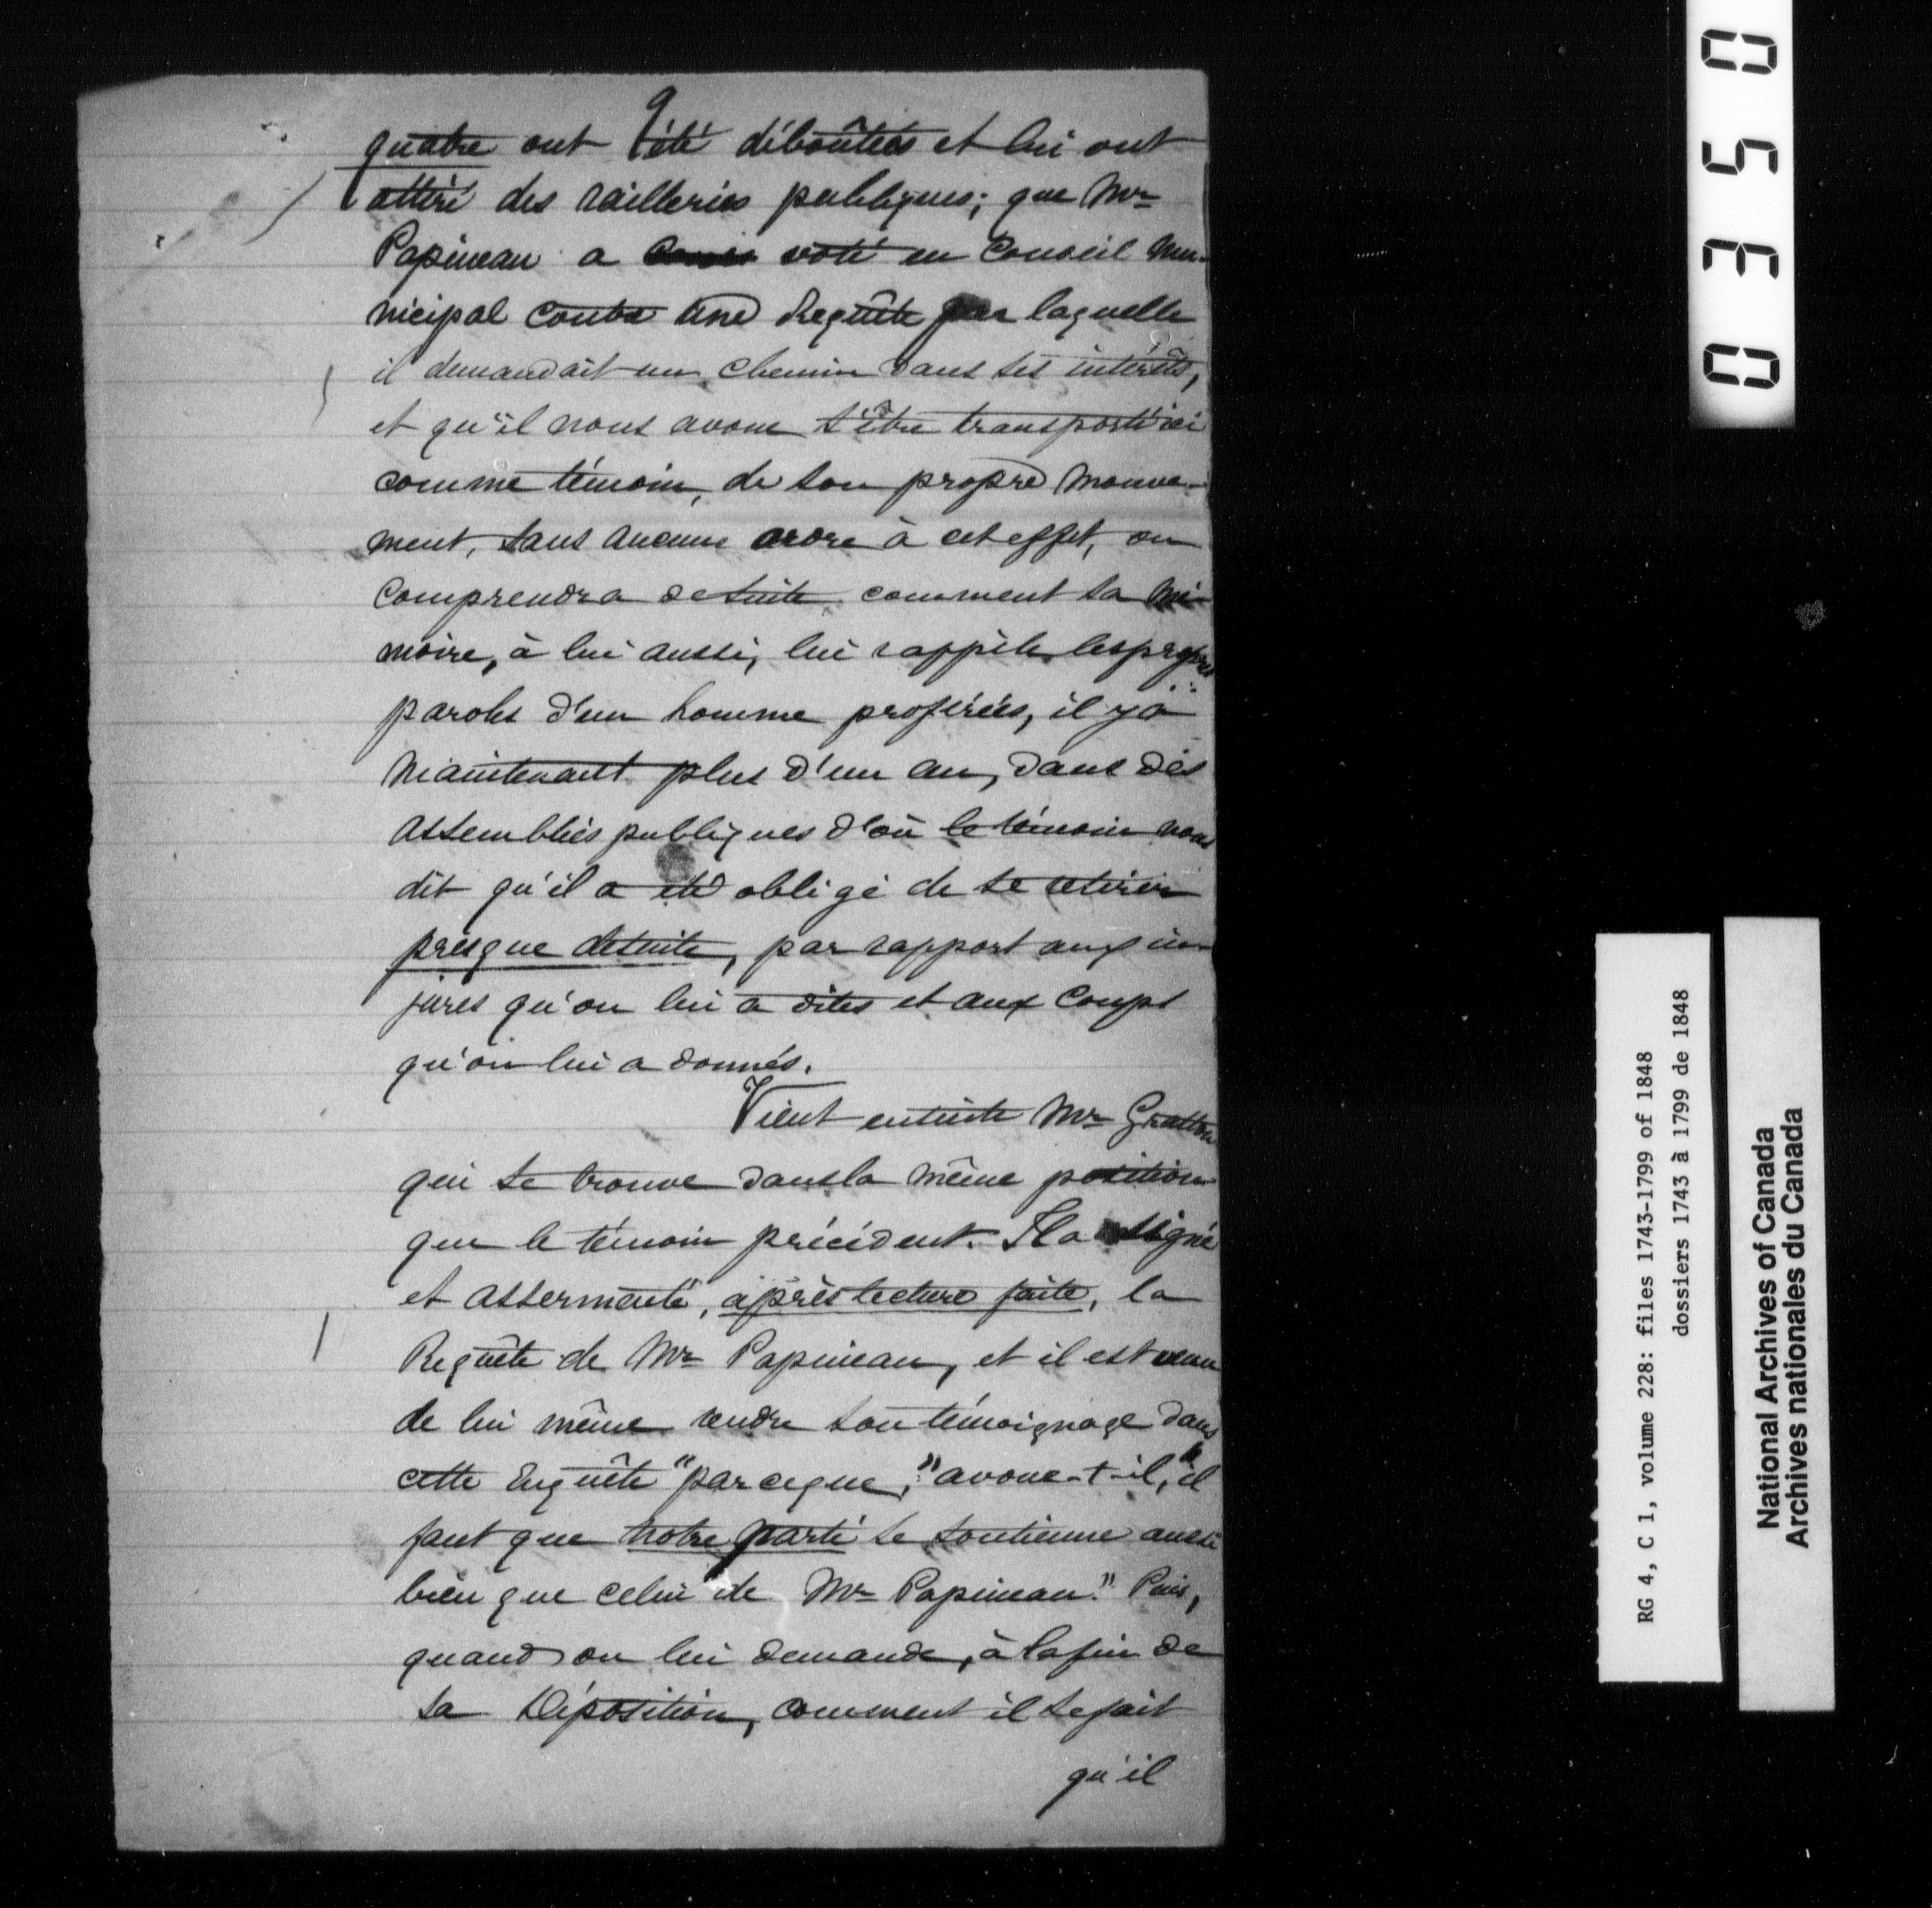 9
quatre ont été déboûtées et lui ont
attiré des railleries publiques; que Mr
Papineau a voté en Conseil Mu-
nicipal contre une Requête par laquelle
il demandait un chemin dans ses intérêts,
et qu'il nous avoue s'être transporté ici
comme témoin, de son propre mouve-
ment, sans aucun ordre à cet effet, on
comprendra de suite comment sa mé-
moire, à lui aussi, lui rappèle les propres
paroles d'un homme proférées, il y a
maintenant plus d'un an, dans des
assemblées publiques d'où le témoin nous
dit qu'il a été obligé de se retirer
presque desuite, par rapport aux in-
jures qu'on lui a dites et aux coups
qu'on lui a donnés.
Vient ensuite Mr Gratton
qui se trouve dans la même position
que le témoin précédent. Il a signé
et assermenté, après lecture faite, la
Requête de Mr Papineau, et il est venu
de lui même rendre son témoignage dans
cette Enquête "parceque," avoue-t-il, "il
faut que notre parti se soutienne aussi
bien que celui de Mr Papineau." Puis,
quand on lui demande, à la fin de
sa Déposition, comment il se fait
qu'il
0350
RG 4, C 1, volume 228: files 1743-1799 of 1848
dossiers 1743 à 1799 de 1848
National Archives of Canada
Archives nationales du Canada